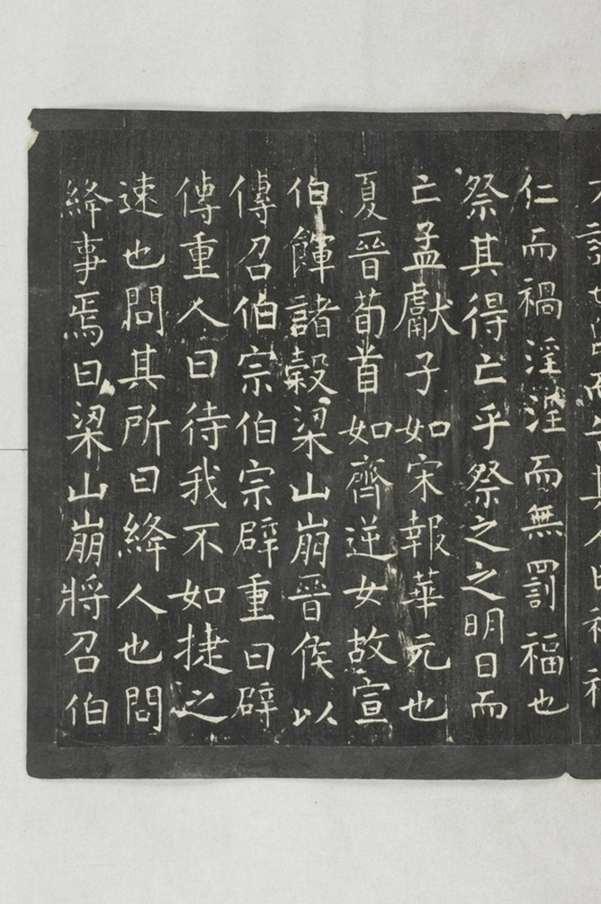 而告其人曰
仁而禍淫淫而無罰福也
祭其得亡乎祭之之明日而
亡孟獻子如宋報華元也
夏晉荀首如齊逆女故宣
伯餫諸穀梁山崩晉侯以
傳召伯宗伯宗辟重曰辟
傳重人曰待我不如捷之
速也問其所曰絳人也問
絳事焉曰梁山崩將召伯